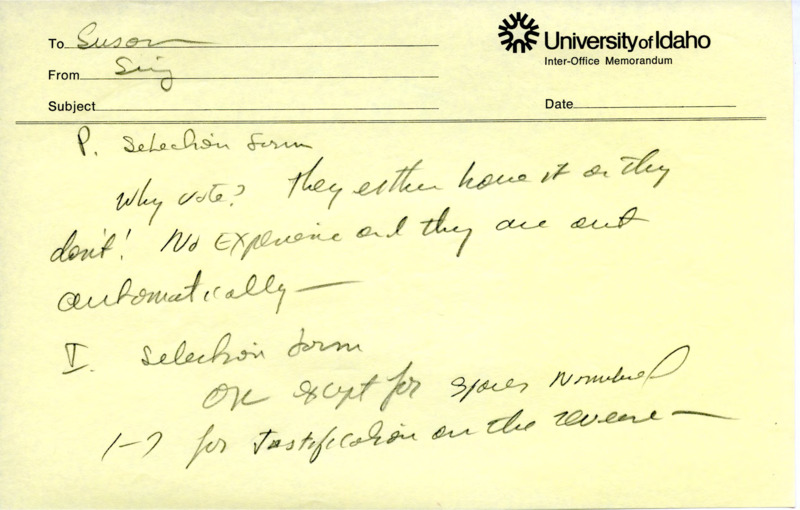 To Susan
University of Idaho
Inter-Office Memorandum
From Sig
Subject
Date
P. Selection form
Why vote? They either have it or they
don't! No Experience and they are out
automatically —
I. Selection form
OK except for spaces Numbered
1-7 for Justification on the reverse —